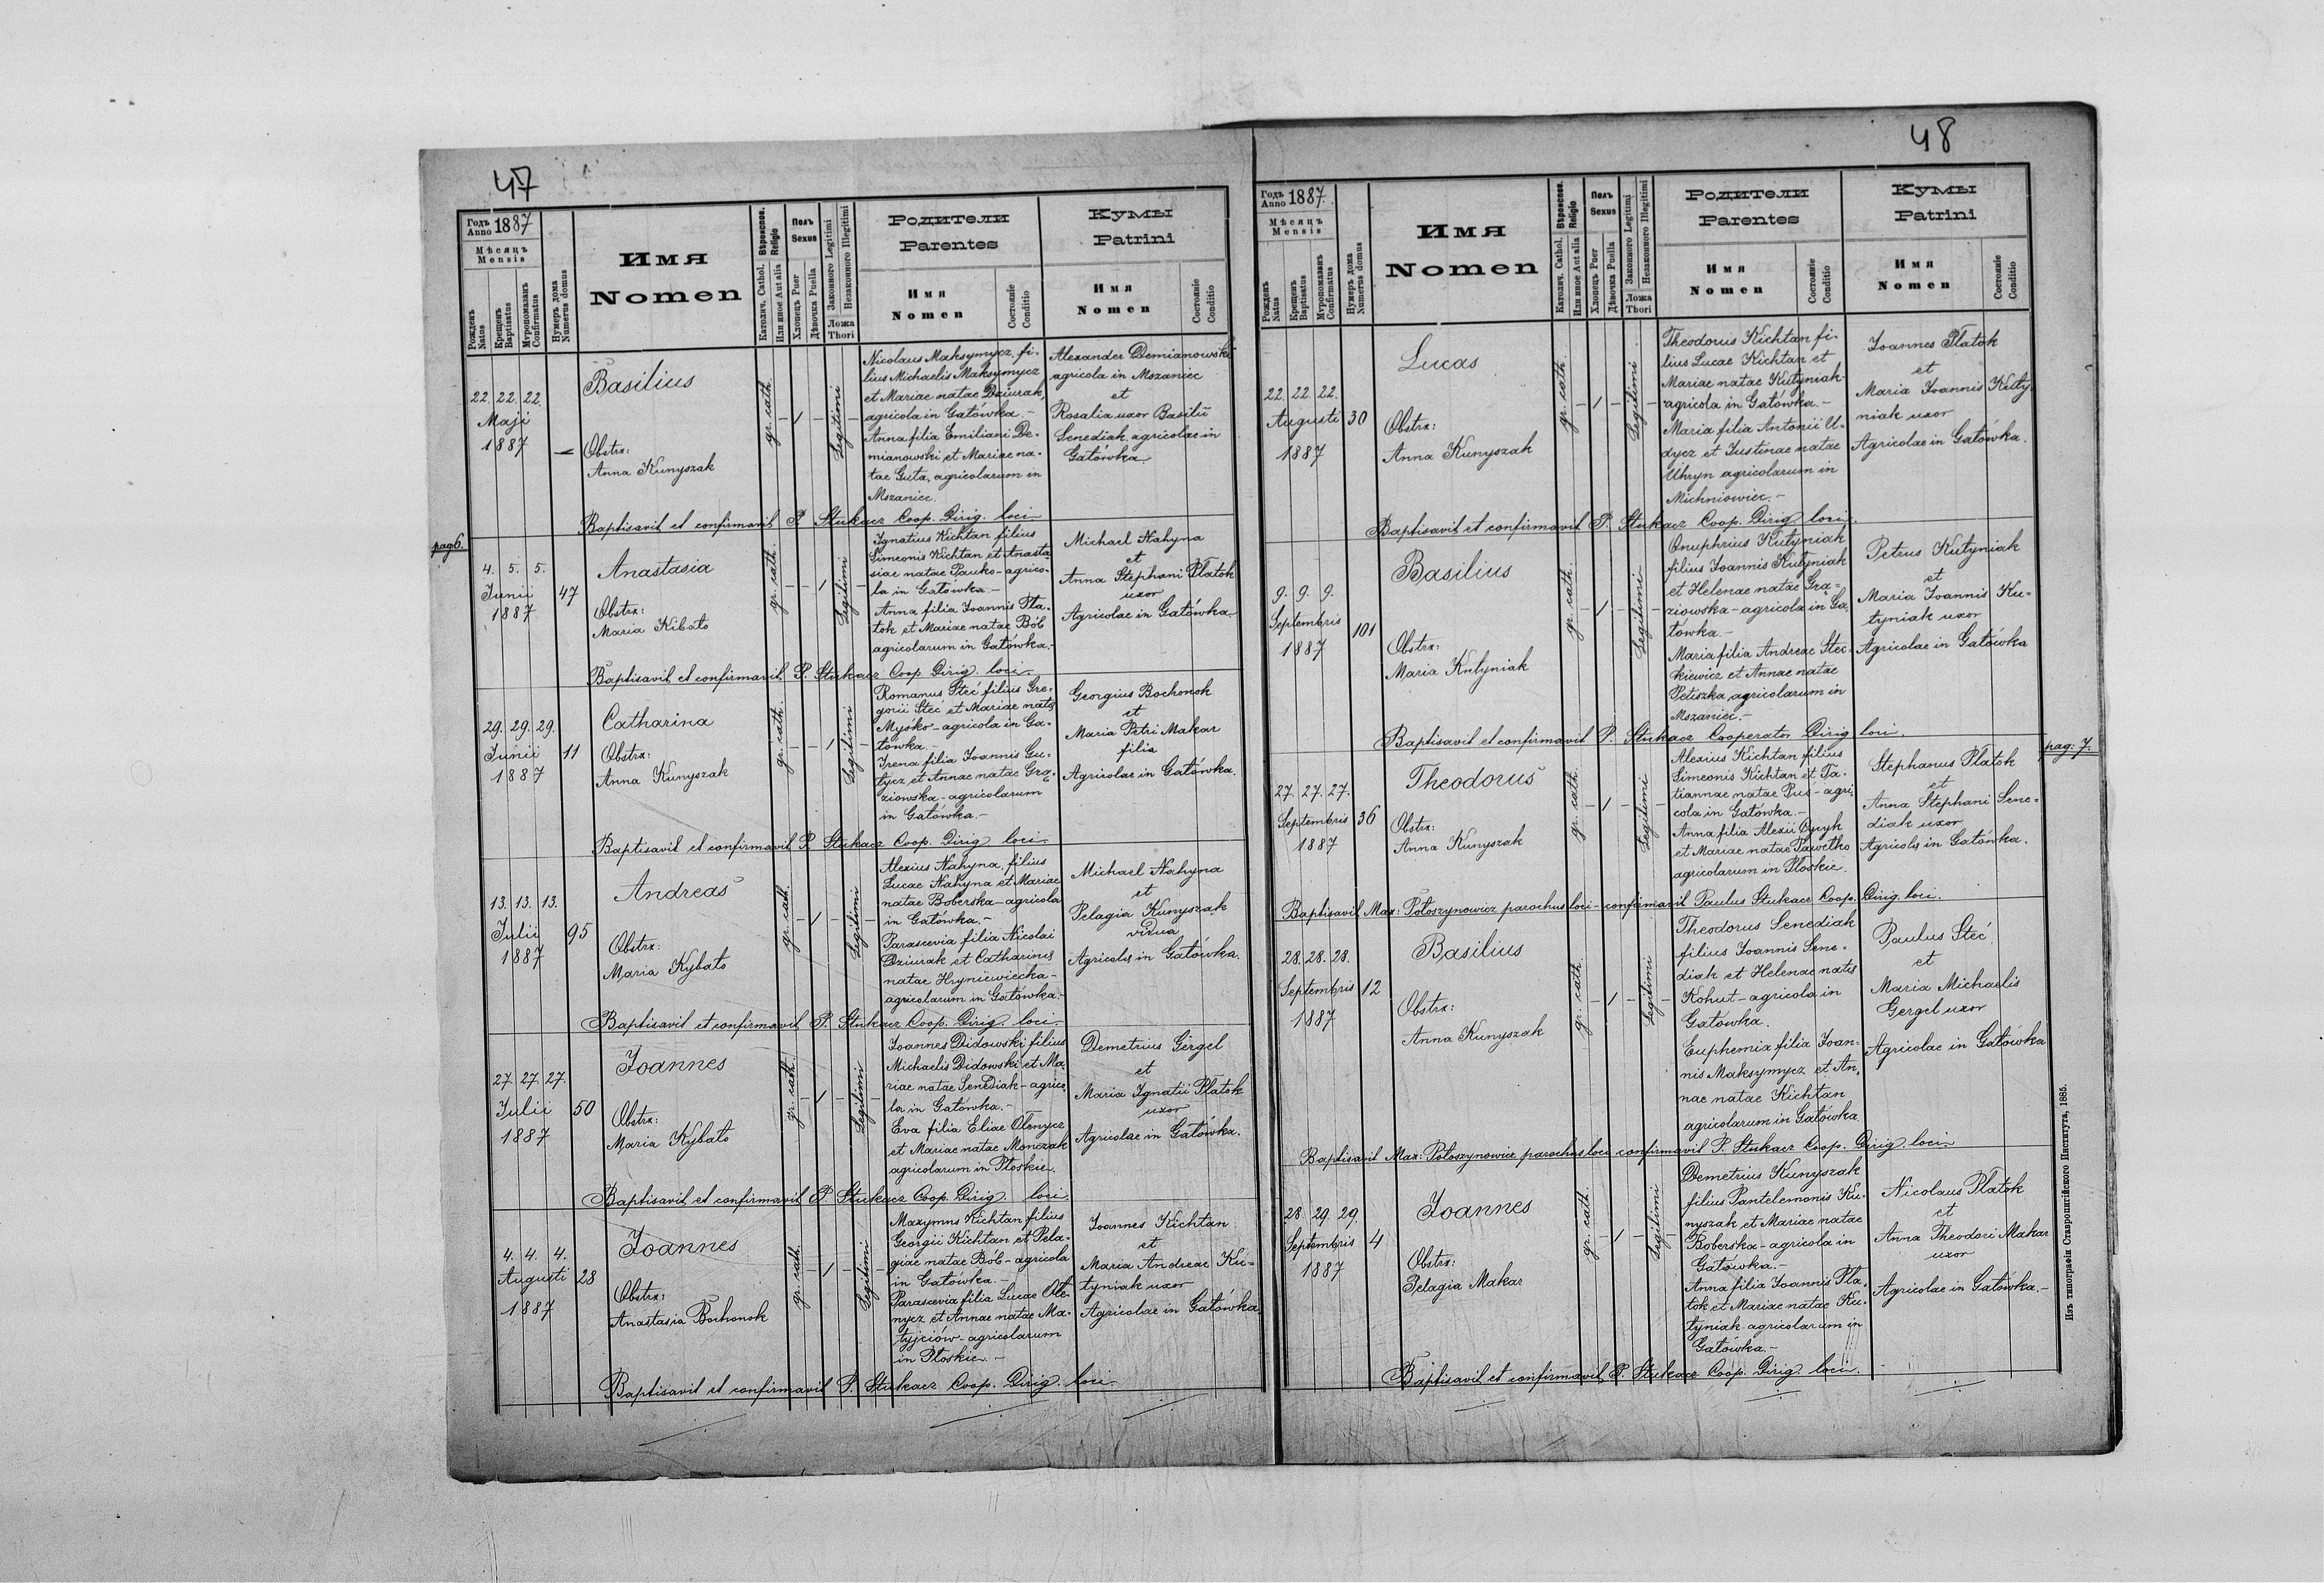 47
Годъ Anno 1887
Мѣсяцъ Mensis
Рожденъ Natus
Крещенъ Baptisatus
Муропомазанъ Confirmatus
Нумеръ дома Numerus domus
Имя
Nomen
Вѣроиспов. Religio
Католич. Cathol.
Или иное Aut alia
Полъ Sexus
Хлопецъ Puer
Дѣвочка Puella
Законного Legitimi
Незаконного Illegitimi
Ложа Thori
Родители
Parentes
Имя
Nomen
Состояніе Conditio
Кумы
Patrini
Имя
Nomen
Состояніе Conditio
22. 22. 22.
Maji
1887
Basilius
Obstrx:
Anna Kunyszak
gr. cath.
1
Legitimi
Nicolaus Maksymycz, fi-
lius Michaelis Maksymycz
et Mariae natae Dziurak,
agricola in Gałówka.-
Anna filia Emiliani De-
mianowski et Mariae na-
tae Guta, agricolarum in
Mszaniec.
Alexander Demianowski
agricola in Mszaniec
et
Rosalia uxor Basilii
Senediak, agricolae in
Gałówka
Baptisavit et confirmavit P. Stukacz Coop. Dirig. loci
pag 6.
4. 5. 5.
Junii
1887
47
Anastasia
Obstrx:
Maria Kibało
gr. cath.
1
Legitimi
Ignatius Kichtan filius
Simeonis Kichtan et Anasta
siae natae Pauko-agrico-
la in Gałówka.-
Anna filia Joannis Pła-
tok et Mariae natae Bób
agricolarum in Gałówka.-
Michael Nahyna
et
Anna Stephani Płatok
uxor
Agricolae in Gałówka
Baptisavit et confirmavit P. Stukacz Coop. Dirig. loci.
29. 29. 29.
Junii
1887
11
Catharina
Obstrx:
Anna Kunyszak
gr. cath.
1
Legitimi
Romanus Steć filius Gre-
gorii Steć et Mariae natae
Myśko-agricola in Ga-
łówka.-
Irena filia Joannis Gu-
tycz et Annae natae Gra-
ziowska-agricolarum
in Gałówka.-
Georgius Bochonok
et
Maria Petri Makar
filia
Agricolae in Gałówka.
Baptisavit et confirmavit P. Stukacz Coop. Dirig. loci.
13. 13. 13.
Julii
1887
95
Andreas
Obstrx:
Maria Kybało
gr. cath.
1
Legitimi
Alexius Nahyna, filius
Lucae Nahyna et Mariae
natae Boberska-agricola
in Gałówka.-
Parascevia filia Nicolai
Dziurak et Catharinae
natae Hryniewiecka-
agricolarum in Gałówka.-
Michael Nahyna
et
Pelagia Kunyszak
vidua
Agricolae in Gałówka.
Baptisavit et confirmavit P. Stukacz Coop. Dirig. loci.
27. 27. 27.
Julii
1887
50
Joannes
Obstrx:
Maria Kybało
gr. cath.
1
Legitimi
Joannes Didowski filius
Michaelis Didowski et Ma-
riae natae Senediak-agrico
la in Gałówka.-
Eva filia Eliae Olenycz
et Mariae natae Monczak
agricolarum in Płoskie.
Demetrius Gergel
et
Maria Ignatii Płatok
uxor
Agricolae in Gałówka.
Baptisavit et confirmavit P. Stukacz Coop. Dirig. loci.
4. 4. 4.
Augusti
1887
28
Joannes
Obstrx:
Anastasia Bochonok
gr. cath.
1
Legitimi
Maxymus Kichtan filius
Georgii Kichtan et Pela-
giae natae Bób-agricola
in Gałówka.-
Parascevia filia Lucae Ole-
nycz et Annae natae Ma-
tyjciów-agricolarum
in Płoskie.-
Joannes Kichtan
et
Maria Andreae Ku-
tyniak uxor
Agricolae in Gałówka.
Baptisavit et confirmavit P. Stukacz Coop. Dirig. loci.
48
Годъ Anno 1887.
Мѣсяцъ Mensis
Рожденъ Natus
Крещенъ Baptisatus
Муропомазанъ Confirmatus
Нумеръ дома Numerus domus
Имя
Nomen
Вѣроиспов. Religio
Католич. Cathol.
Или иное Aut alia
Полъ Sexus
Хлопецъ Puer
Дѣвочка Puella
Законного Legitimi
Незаконного Illegitimi
Ложа Thori
Родители
Parentes
Имя
Nomen
Состояніе Conditio
Кумы
Patrini
Имя
Nomen
Состояніе Conditio
22. 22. 22.
Augusti
1887
30
Lucas
Obstrx:
Anna Kunyszak
gr. cath.
1
Legitimi
Theodorus Kichtan fi-
lius Lucae Kichtan et
Mariae natae Kutyniak-
agricola in Gałówka.-
Maria filia Antonii U-
dycz et Justinae natae
Uhryn agricolarum in
Michniowiec.-
Joannes Płatok
et
Maria Joannis Kuty
niak uxor
Agricolae in Gałówka.
Baptisavit et confirmavit P. Stukacz Coop. Dirig. loci.
9. 9. 9.
Septembris
1887
101
Basilius
Obstrx:
Maria Kutyniak
gr. cath.
1
Legitimi
Onuphrius Kutyniak
filius Joannis Kutyniak
et Helenae natae Gra=
ziowska-agricola in Ga
łówka.-
Maria filia Andreae Stec-
kiewicz et Annae natae
Petiszka, agricolarum in
Mszaniec.-
Petrus Kutyniak
et
Maria Joannis Ku=
tyniak uxor
Agricolae in Gałówka
Baptisavit et confirmavit P. Stukacz Cooperator Dirig. loci
pag: 7.
27. 27. 27.
Septembris
1887
36
Theodorus
Obstrx:
Anna Kunyszak
gr. cath.
1
Legitimi
Alexius Kichtan filius
Simeonis Kichtan et Ta-
tiannae natae Puś-agri-
cola in Gałówka.-
Anna filia Alexii Cycyk
et Mariae natae Pawełko
agricolarum in Płoskie.
Stephanus Płatok
et
Anna Stephani Sene=
diak uxor
Agricolae in Gałówka.
Baptisavit Max: Połoszynowicz parochus loci-confirmavit Paulus Stukacz Coop. Dirig. loci.
28. 28. 28.
Septembris
1887
12
Basilius
Obstrx:
Anna Kunyszak
gr. cath.
1
Legitimi
Theodorus Senediak
filius Joannis Sene=
diak et Helenae natae
Kohut-agricola in
Gałówka.
Euphemia filia Joan-
nis Maksymycz et An-
nae natae Kichtan
agricolarum in Gałówka
Paulus Steć
et
Maria Michaelis
Gergel uxor
Agricolae in Gałówka
Baptisavit Max: Połoszynowicz parochus loci confirmavit P. Stukacz Coop. Dirig. loci
28. 29. 29.
Septembris
1887
4
Joannes
Obstrx:
Pelagia Makar
gr. cath.
1
Legitimi
Demetrius Kunyszak
filius Pantelemonis Ku-
nyszak et Mariae natae
Boberska-agricola in
Gałówka.-
Anna filia Joannis Pła-
tok et Mariae natae Ku-
tyniak agricolarum in
Gałówka.-
Nicolaus Płatok
et
Anna Theodori Makar
uxor
Agricolae in Gałówka.-
Baptisavit et confirmavit P. Stukacz Coop. Dirig. loci.
Изъ типографіи Ставропигійского Института, 1885.